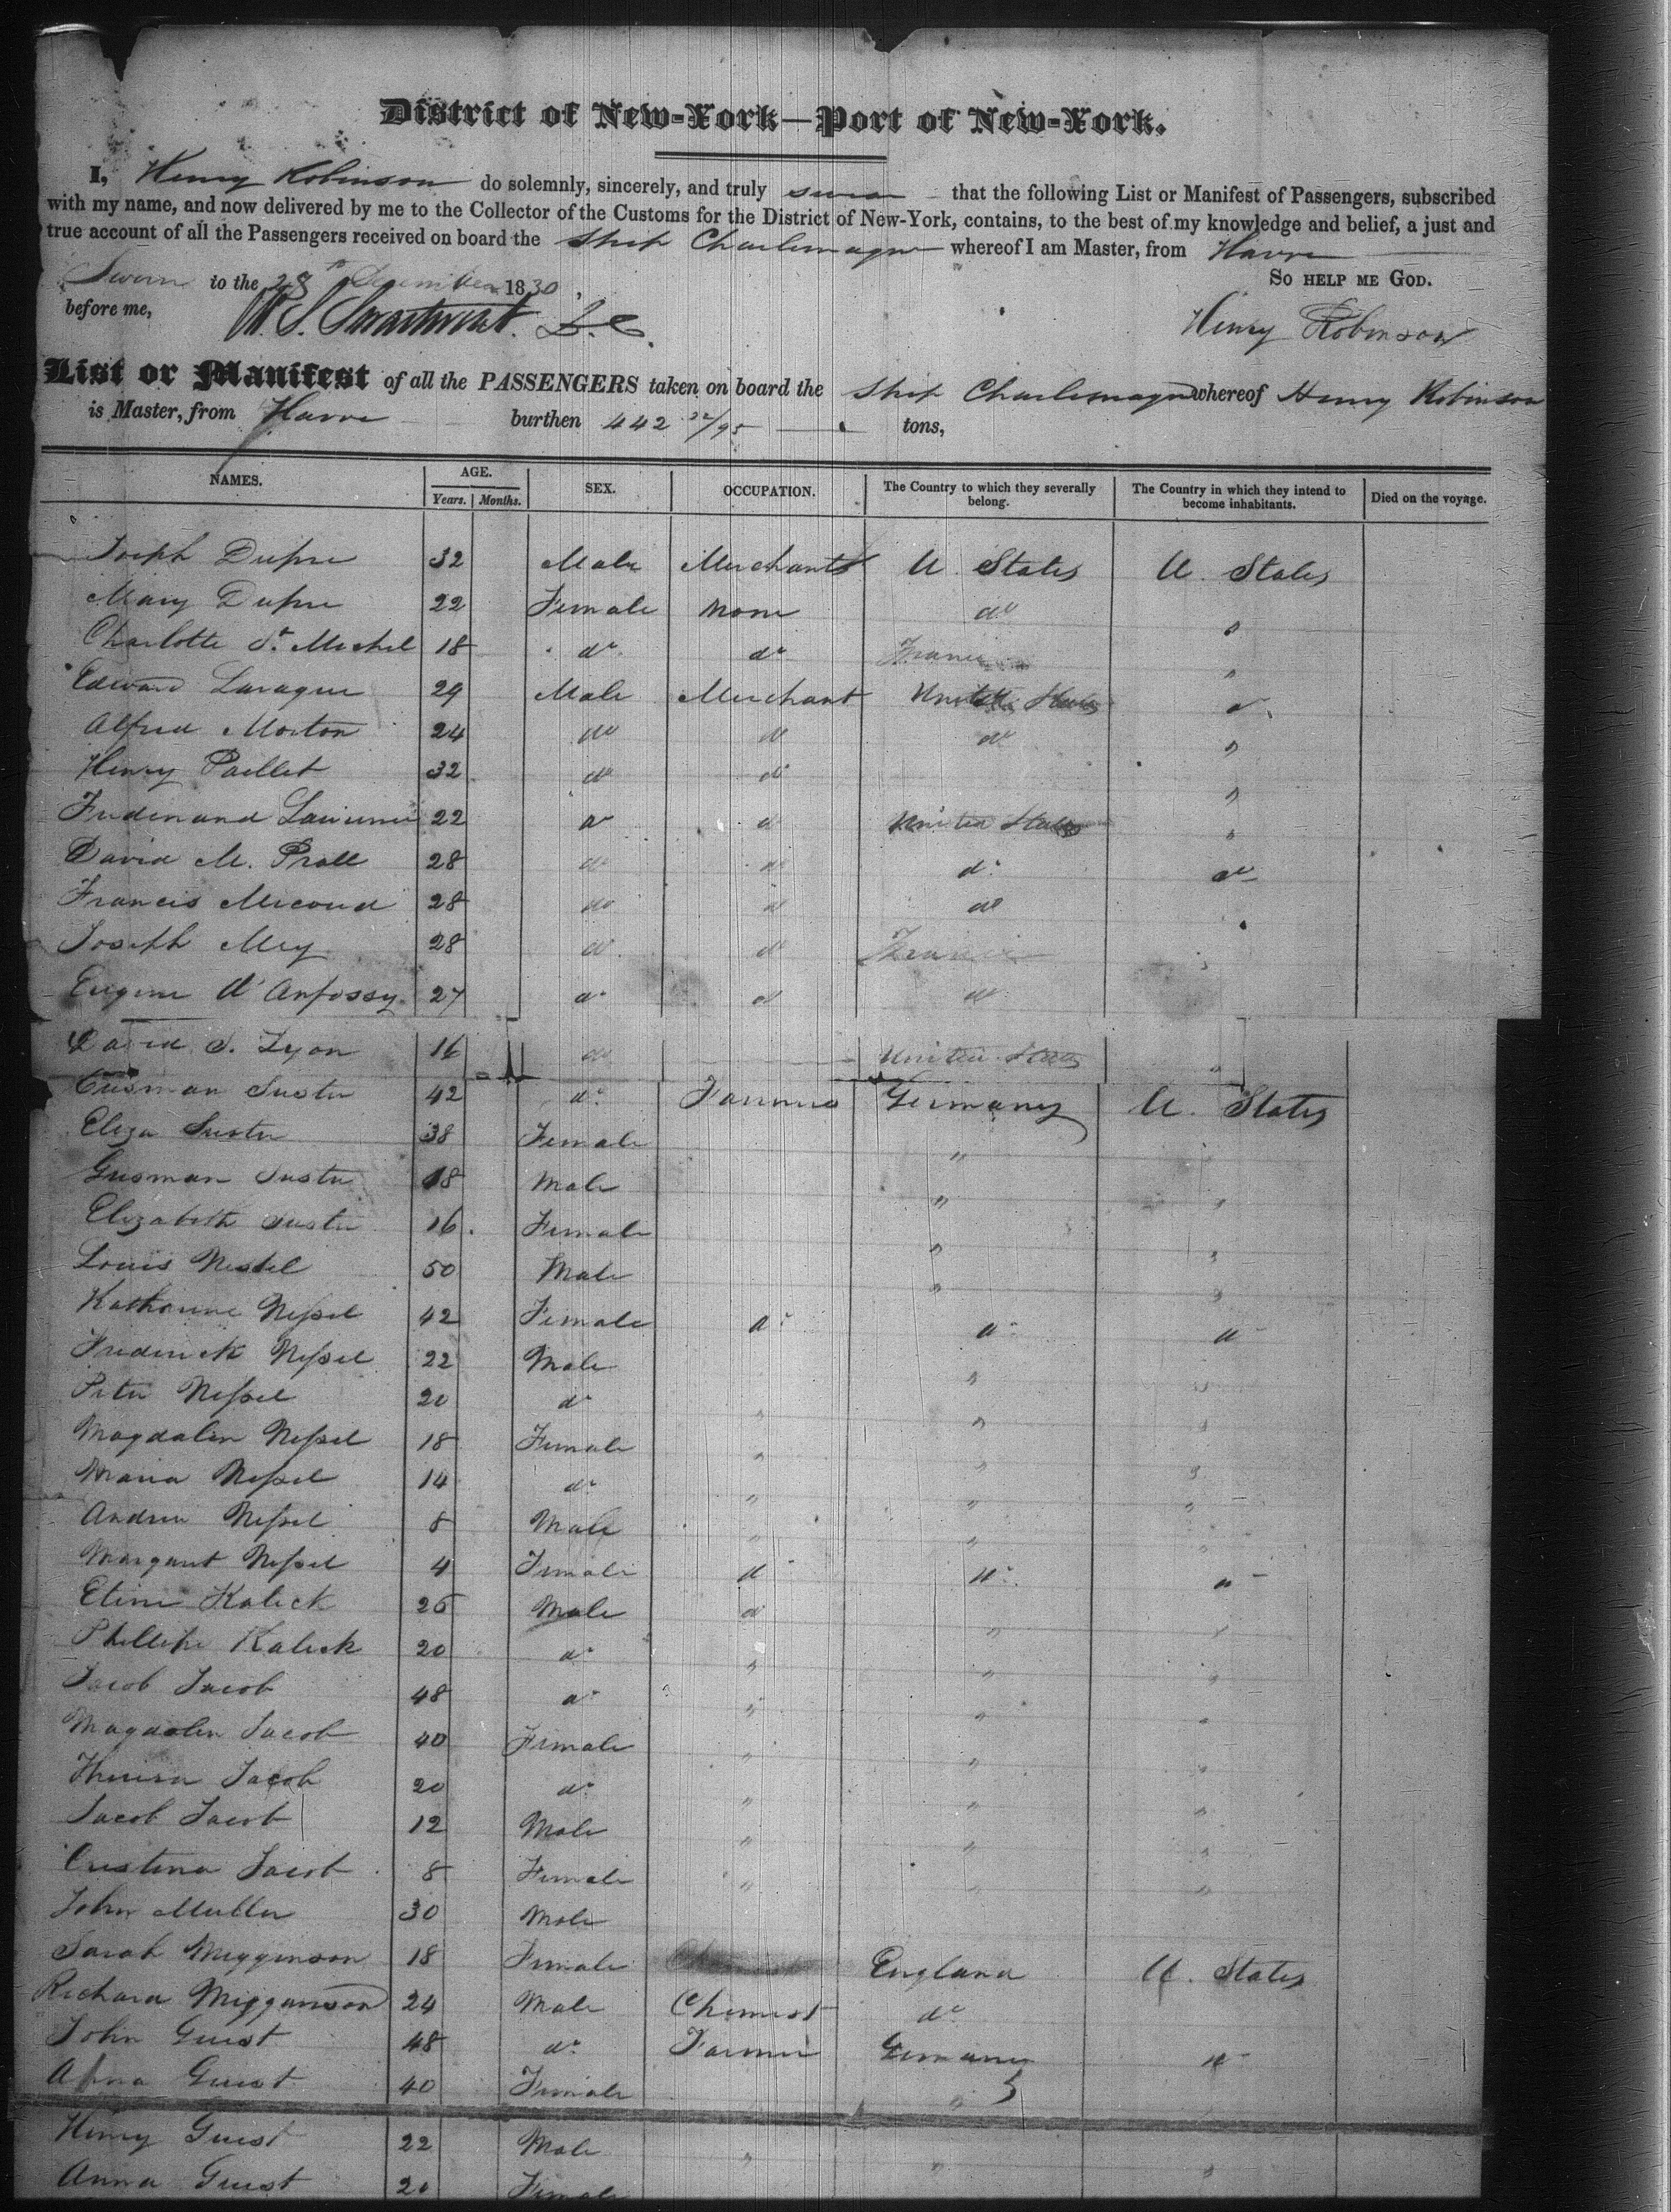 District of New-York—Port of New-York.
I, Henry Robinson do solemnly, sincerely, and truly swear that the following List or Manifest of Passengers, subscribed
with my name, and now delivered by me to the Collector of the Customs for the District of New-York, contains, to the best of my knowledge and belief, a just and
true account of all the Passengers received on board the Ship Charlemagne whereof I am Master, from Havre
Sworn to the 28th December 1830. So HELP ME GOD.
before me, Henry Robinson
List or Manifest of all the PASSENGERS taken on board the Ship Charlemagne whereof Henry Robinson
is Master, from Havre burthen 442 32/95 tons,
NAMES. AGE. Years. Months. SEX. OCCUPATION. The Country to which they severally belong. The Country in which they intend to become inhabitants. Died on the voyage.
Joseph Dupre 32 Male Merchant U. States U. States
Mary Dupre 22 Female None do "
Charlotte St. Michel 18 do do France "
Edward Laraque 29 Male Merchant United States do
Alfred Morton 24 do do do "
Henry Paillet 32 do do "
Ferdinand 22 do do United States "
David M. Prall 28 do do do do
Francis Micoud 28 do do do "
Joseph Mey 28 do do France "
Eugene d'Anfossy 27 do do do
David S. Lyon 16 do — United States "
Susten 42 do Farmers Germany U. States
Eliza Susten 38 Female "
Gusman Susten 18 Male " "
Elizabeth Susten 16 Female " "
Louis Nessel 50 Male " "
Katharine Nessel 42 Female do do do
Frederick Nessel 22 Male " "
Peter Nessel 20 do " " "
Magdalen Nessel 18 Female " " "
Maria Nessel 14 do " " "
Andrew Nessel 8 Male " " "
Margaret Nessel 4 Female do do do
Etine Kalick 26 Male do " "
Phillipe Kalick 20 do " " "
Jacob Jacob 48 do " " "
Magdalen Jacob 40 Female " " "
Theresa Jacob 20 do " " "
Jacob Jacob 12 Male " " "
Cristina Jacob 8 Female " " "
John Muller 30 Male
Sarah Migginson 18 Female England U. States
Richard Migganson 24 Male Chemist do
John Guest 48 do Farmer Germany do
Anna Guest 40 Female "
Henry Guest 22 Male " " "
Anna Guest 20 Female